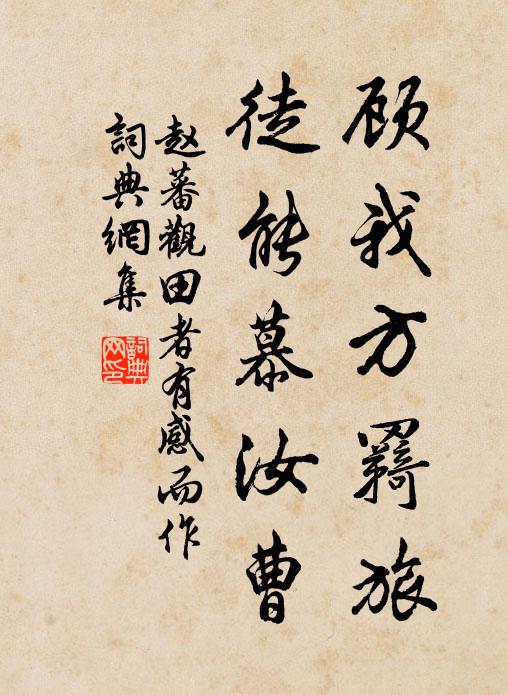 顾我方羇旅
徒能慕汝曹
赵蕃觀田者有感而作
詞典網集
詞典网印